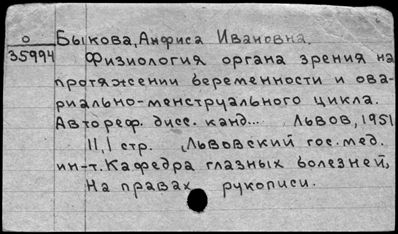 О Быкова, Анфиса Ивановна.
35994 Физиология органа зрения на
протяжении беременности и ова-
риально-менструального цикла.
Автореф. дисс. канд... Львов, 1951
11,1 стр. , Львовский гос. мед.
ин-т. Кафедра глазных болезней,
На правах рукописи.